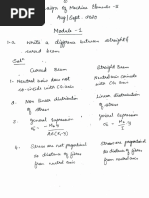 Design of Machine Elements - II
Aug/Sept. 2020
Module - 1
1-a. Write a difference between straight &
curved beam.
Solⁿ
Curved Beam
Straight Beam
1. Neutral axis does not
co-incide with CG axis
Neutral axis coincide
with CG axis
2. Non linear distribution
of stress
Linear distribution
of stress.
3. General expression
General expression
4. Stress are not propotional
to distance of fibres
from neutral axis.
Stress are propotional
to distance of fibres
from neutral axis.